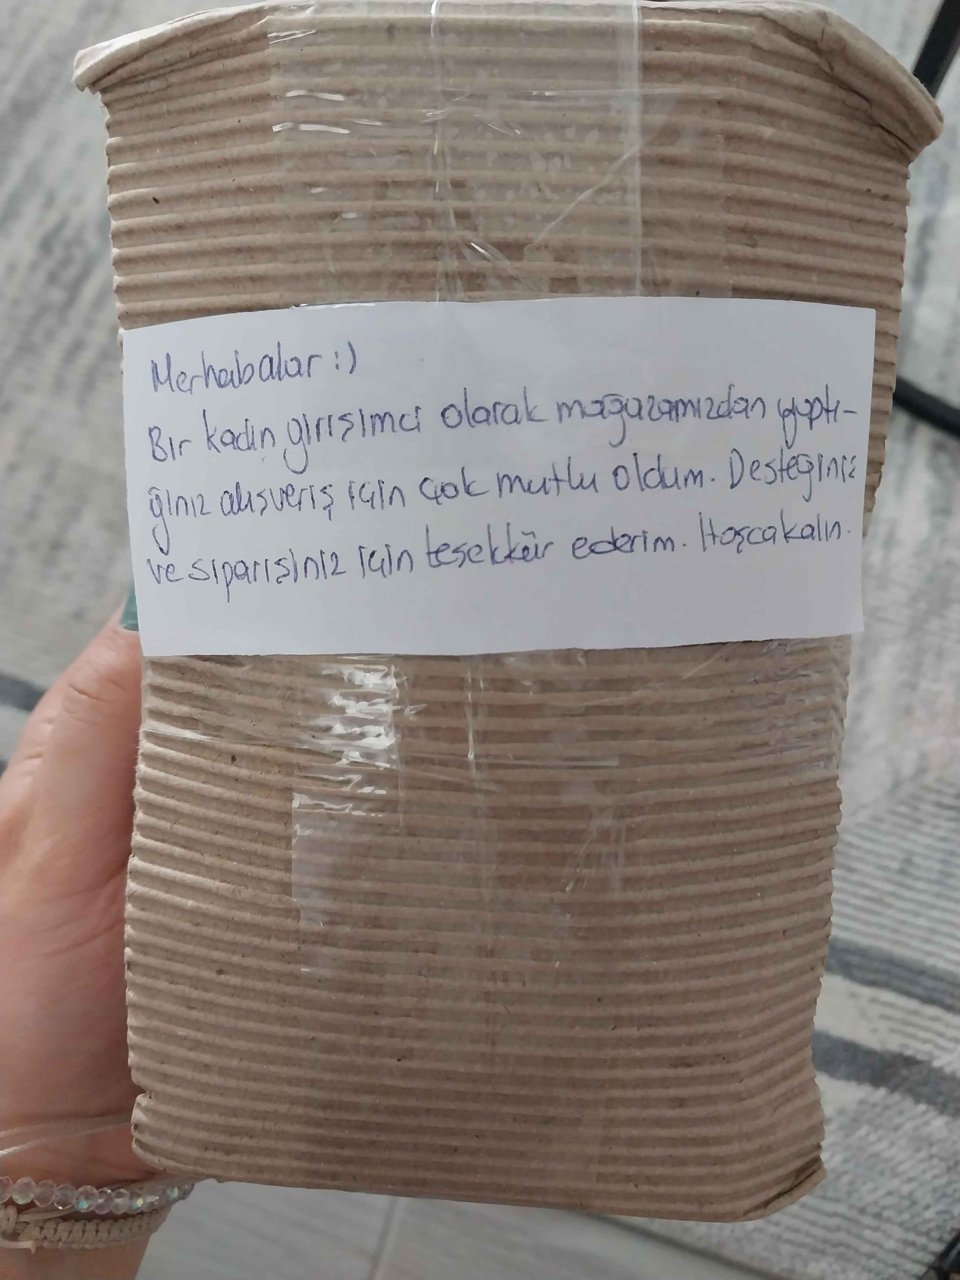 Merhabalar :)
Bir kadın girişimci olarak mağazamızdan yaptı-
ğınız alışveriş için çok mutlu oldum. Desteğiniz
ve siparişiniz için teşekkür ederim. Hoşçakalın.